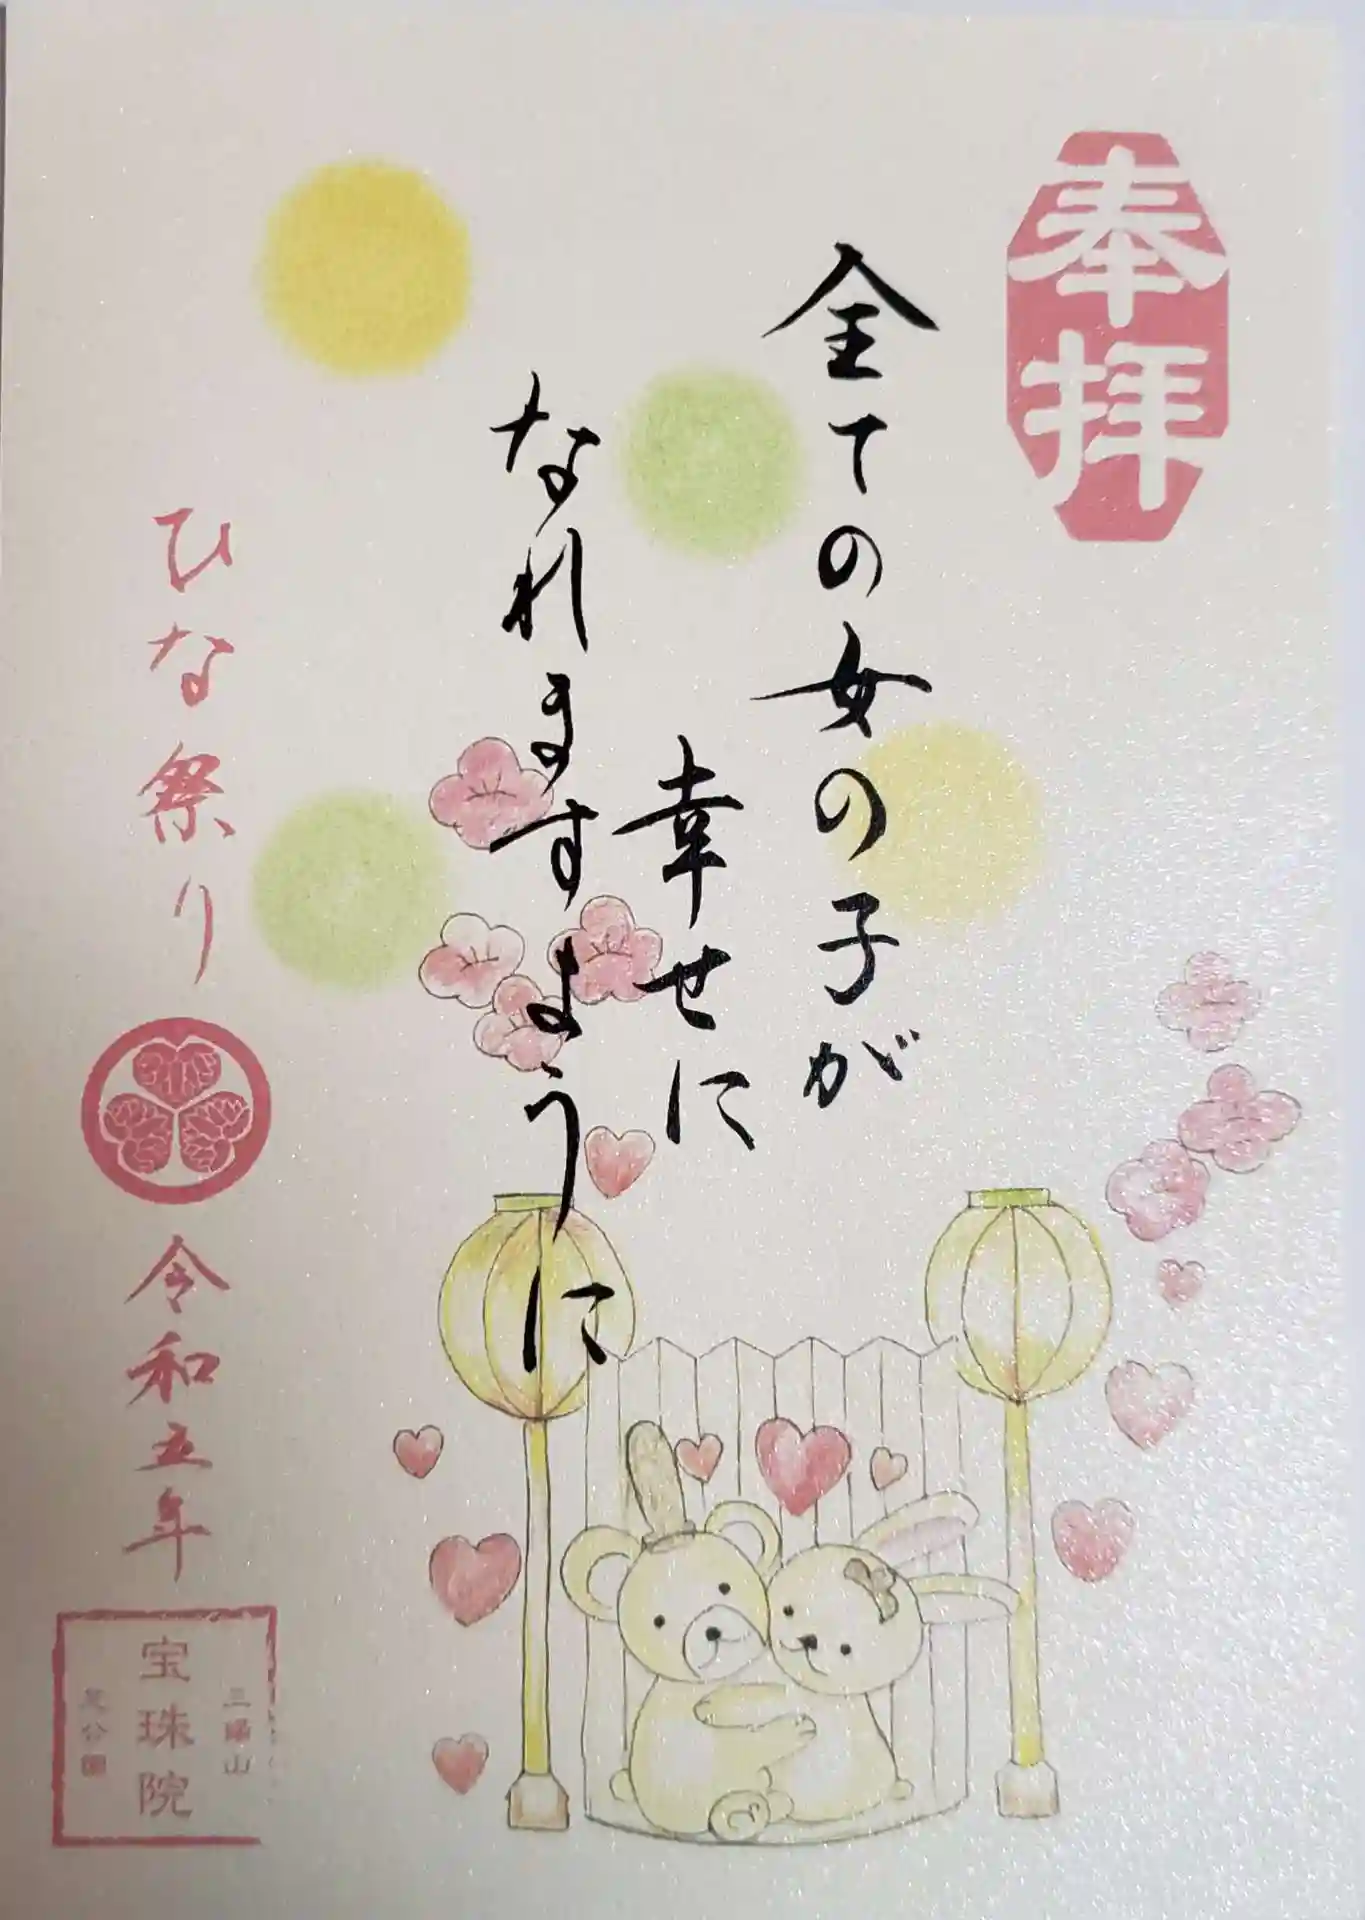 奉拝
全ての女の子が
幸せに
なれますように
ひな祭り
令和五年
三縁山
宝珠院
芝公園